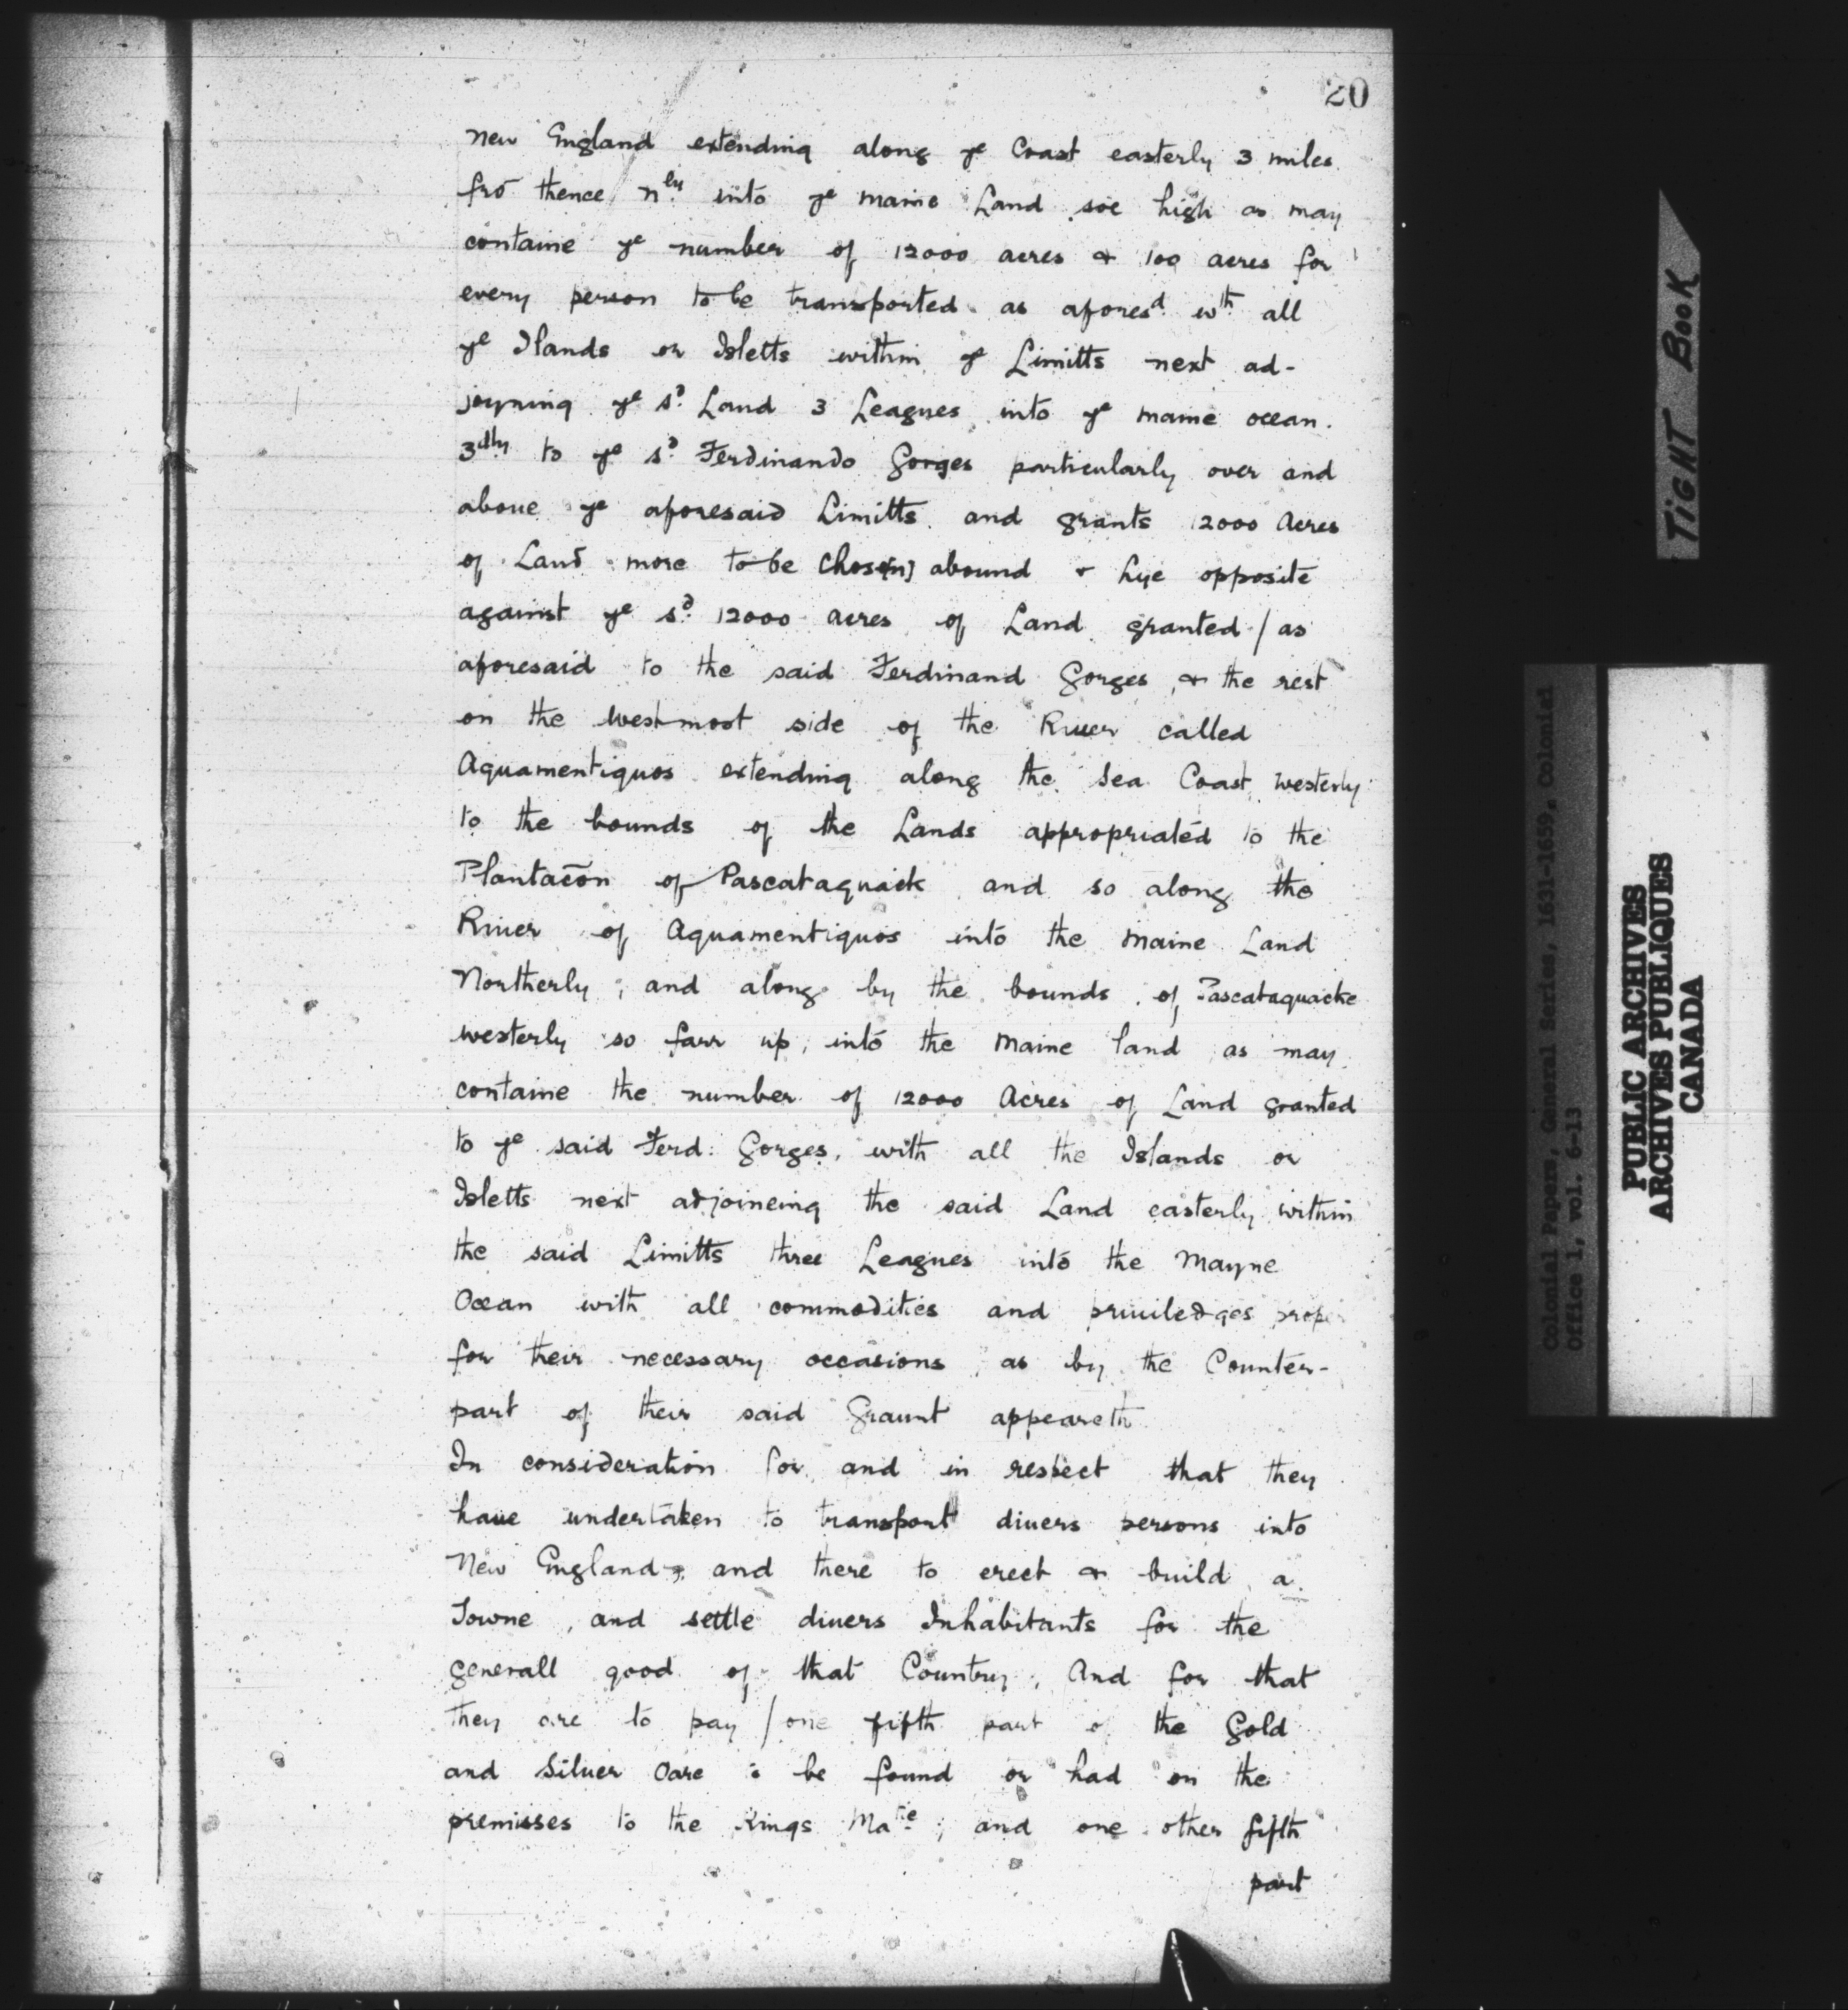 20
New England extending along ye Coast easterly 3 miles
frō thence nly into ye maine Land soe high as may
containe ye number of 12000 acres & 100 acres for
every person to be transported as aforesd. wth all
ye Ilands or Isletts within ye Limitts next ad-
joyning ye sd. Land 3 Leagues into ye maine ocean.
3dly to ye sd. Ferdinando Gorges particularly over and
aboue ye aforesaid Limitts and grants 12000 Acres
of Land more to be chose[n] abound & Lye opposite
against ye sd. 12000 acres of Land granted / as
aforesaid to the said Ferdinand Gorges, & the rest
on the westmost side of the Riuer called
Aquamentiquos extending along the Sea Coast westerly
to the bounds of the Lands appropriated to the
Plantacōn of Pascataquack and so along the
Riuer of Aquamentiquos into the Maine Land
Northerly; and along by the bounds of Pascataquacke
westerly so farr up, into the Maine land as may
containe the number of 12000 Acres of Land granted
to ye said Ferd: Gorges, with all the Islands or
Isletts next adjoineing the said Land easterly within
the said Limitts three Leagues into the Mayne
Ocean with all commodities and priuiledges proper
for their necessary occasions, as by the Counter-
part of their said Graunt appeareth
In consideration for and in respect that they
haue undertaken to transport diuers persons into
New England, and there to erect & build a
Towne, and settle diuers Inhabitants for the
generall good of that Country; And for that
they are to pay / one fifth part of the Gold
and Siluer Oare to be found or had on the
premisses to the Kings Matie.; and one other fifth
part
TIGHT BOOK
Colonial Papers, General Series, 1631-1659, Colonial
Office 1, vol. 6-13
PUBLIC ARCHIVES
ARCHIVES PUBLIQUES
CANADA